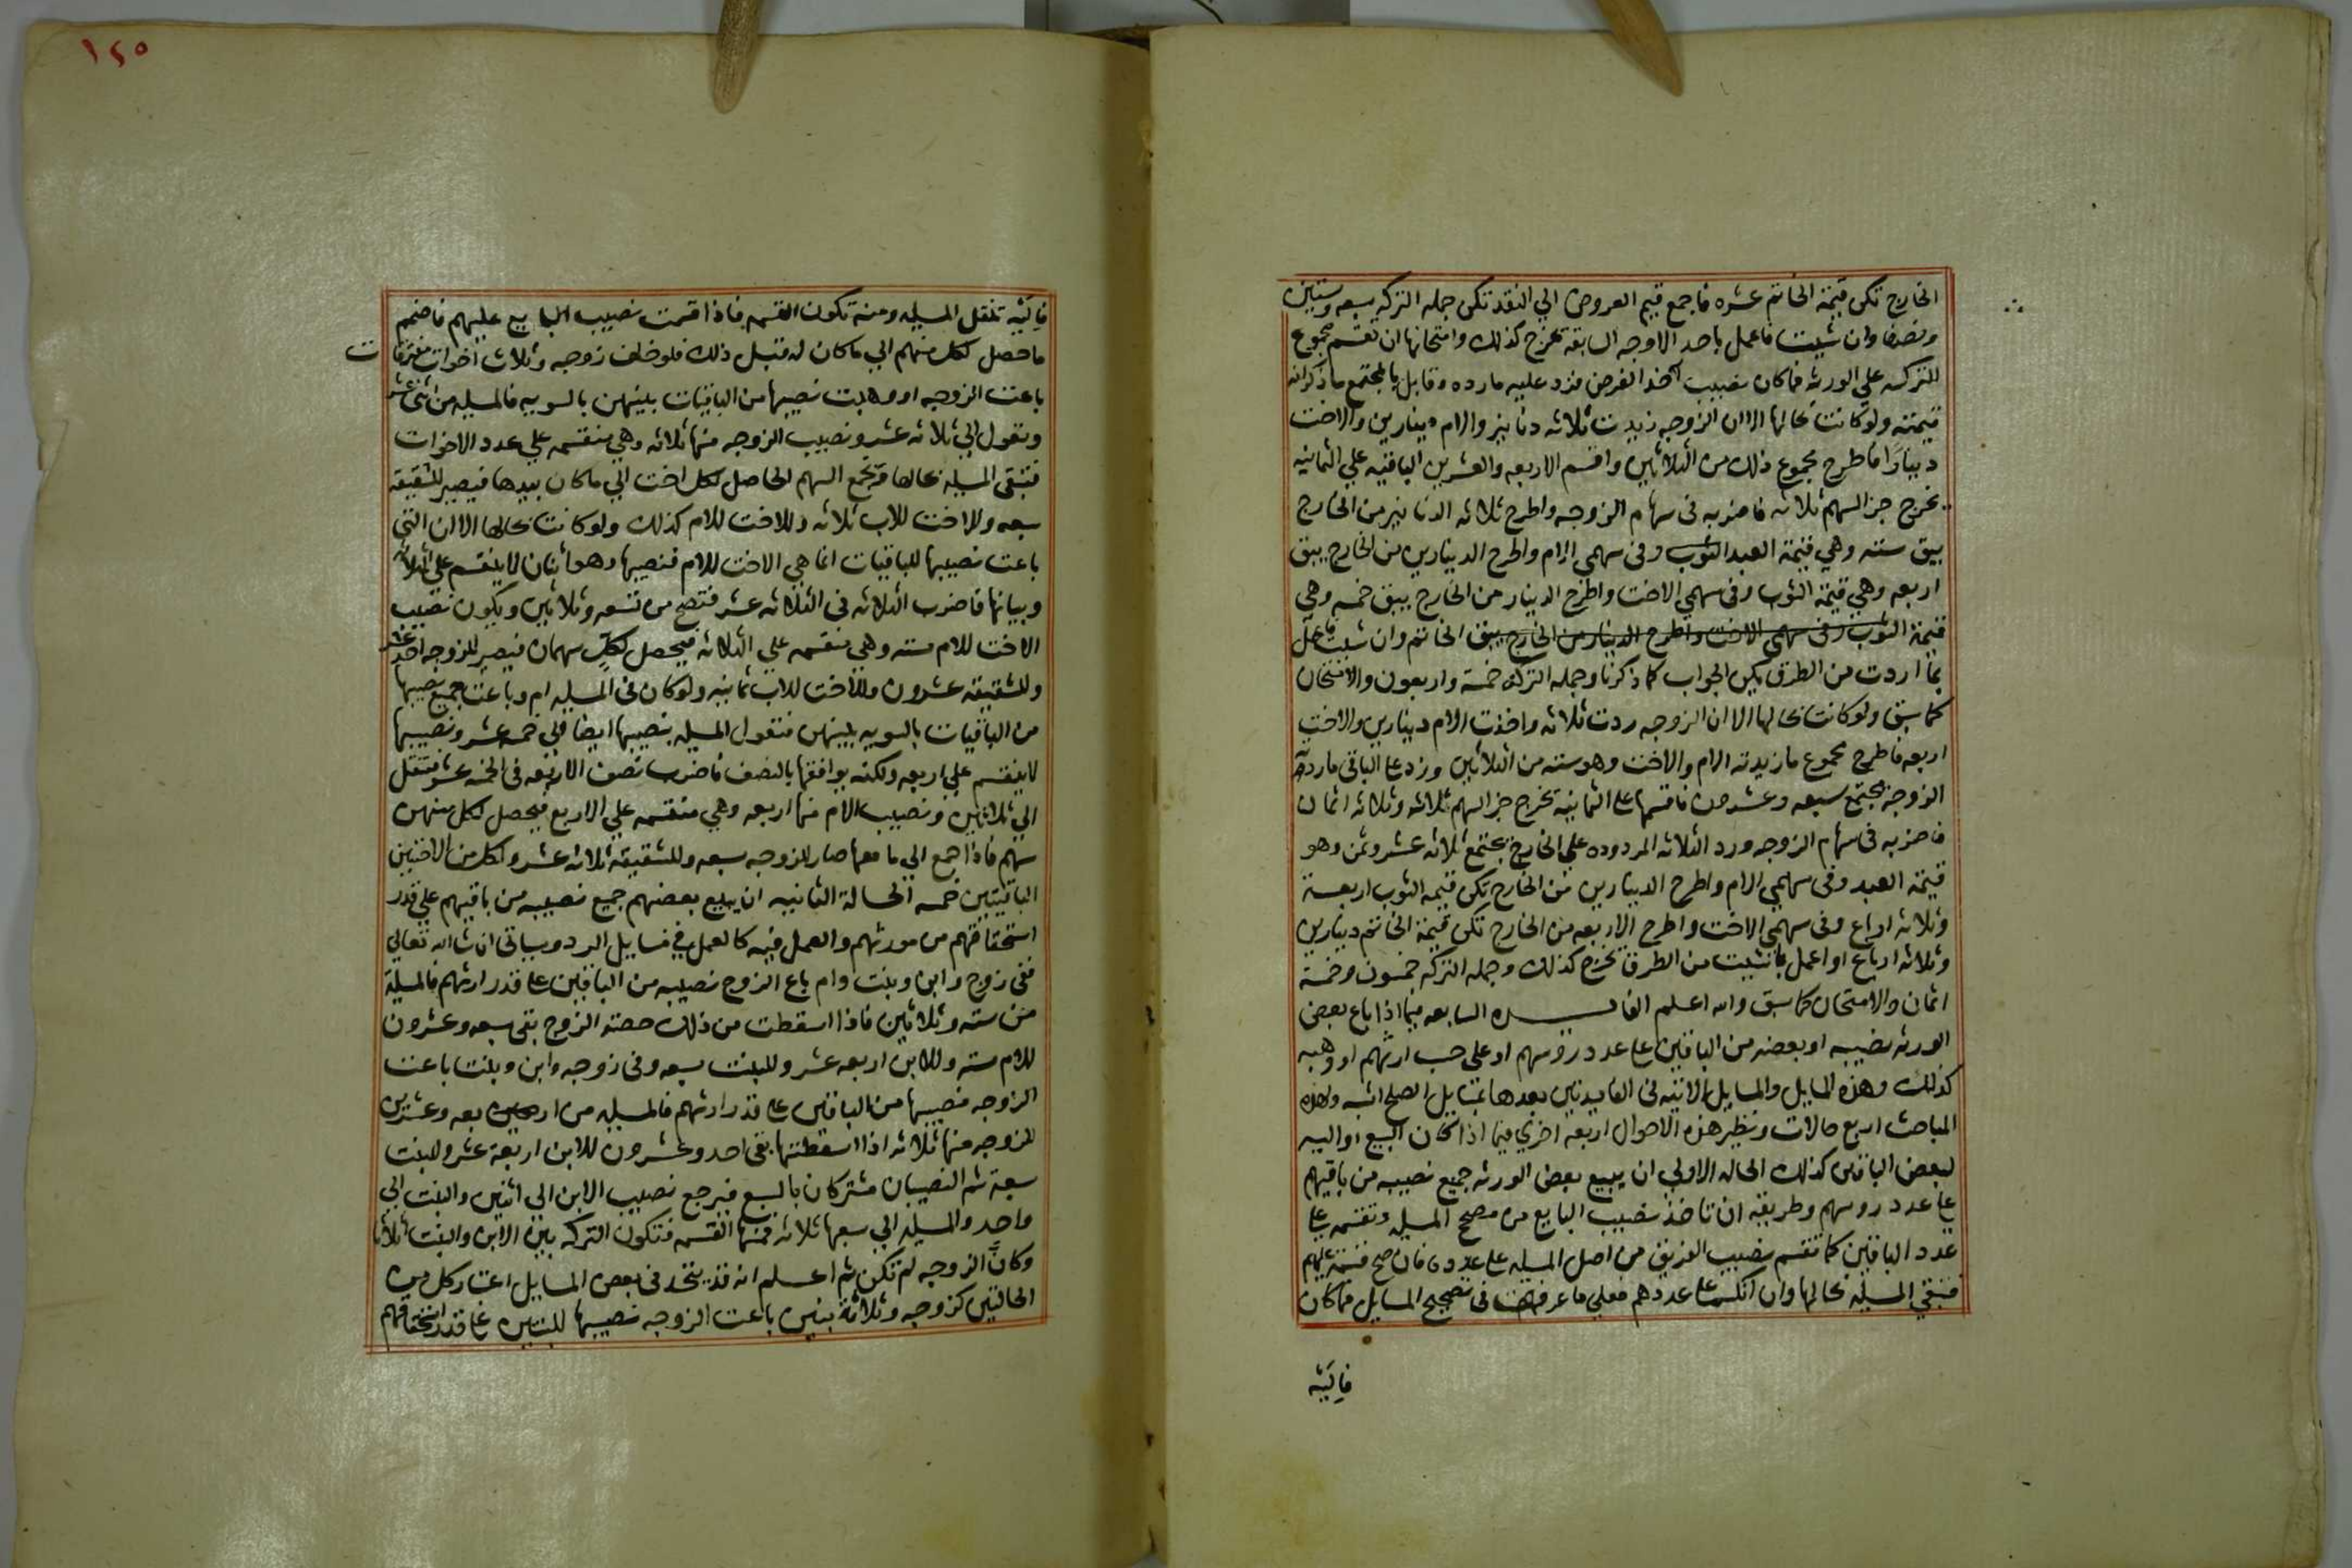 الخارج تكن قيمة الخاتم عشره فاجمع قيم العروض الي النقد تكن جمله التركه سبعه وستين
ونصفا وان شيت فاعمل باحد الاوجه السابقة تخرج كذلك وامتحانها ان تقسم مجموع
التركه علي الورثه فما كان نصيب آخذ العرض فزد عليه مارده وقابل بالمجتمع ما ذكرانه
قيمته ولو كانت بحالها الا ان الزوجه زيدت ثلاثه دنانير والام دينارين والاخت
دينارًا فاطرح مجموع ذلك من الثلاثين واقسم الاربعه والعشرين الباقيه علي الثمانيه
يخرج جز السهم ثلاثه فاضربه فى سهام الزوجه واطرح ثلاثه الدنانير من الخارج
يبق سته وهي قيمة العبد الثوب وفى سهمي الام واطرح الدينارين من الخارج يبق
اربعه وهي قيمة الثوب وفى سهمي الاخت واطرح الدينار من الخارج يبق خمسه وهي
قيمة الثوب وفى سهمي الاخت واطرح الدينار من الخارج يبق الخاتم وان شيت فاعمل
بما اردت من الطرق يكن الجواب كما ذكرنا وجمله التركه خمسة واربعون والامتحان
كما سبق ولو كانت بحالها الا ان الزوجه ردت ثلاثه واخذت الام دينارين والاخت
اربعه فاطرح مجموع ما زيدته الام والاخت وهو سته من الثلاثين وزد على الباقى ماردته
الزوجة يجتمع سبعه وعشرون فاقسمها على الثمانية تخرج جز السهم ثلاثه وثلاثه اثمان
فاضربه فى سهام الزوجه ورد الثلاثه المردوده علي الخارج يجتمع ثلاثه عشر وثمن وهو
قيمة العبد وفى سهمي الام واطرح الدينارين من الخارج تكن قيمه الثوب اربعة
وثلاثه ارباع وفى سهمي الاخت واطرح الاربعه من الخارج تكن قيمة الخاتم دينارين
وثلاثه ارباع او اعمل بما شيت من الطرق تخرج كذلك وجمله التركه خمسون وخمسة
اثمان والامتحان كما سبق والله اعلم الفايـــده السابعه فيما اذا باع بعض
الورثه نصيبه او بعضه من الباقين على عدد روسهم او على حسب ارثهم او وهبه
كذلك وهذه المسايل والمسايل الاتيه فى الفايدتين بعدها بمسايل الصلح اشبه ولهذه
المباحث اربع حالات ونظير هذه الاحوال اربعه اخري فيما اذا كان البيع او الهبه
لبعض الباقين كذلك الحاله الاولي ان يبيع بعض الورثه جميع نصيبه من باقيهم
على عدد روسهم وطريقه ان تاخذ نصيب البايع من مصحح المسيله وتقسمه على
عدد الباقين كما تقسم نصيب الفريق من اصل المسيله على عدده فان صح قسمته عليهم
فتبقي المسيله بحالها وان انكسر على عددهم فعلي ما عرفته فى تصحيح المسايل فما كان
فايَتَيه
١٤٥
فايَتَيه تنقل المسيله ومنه تكون القسمه فاذا قسمت نصيب البايع عليهم فاضمم
ما حصل لكل منهم الي ما كان له قبل ذلك فلو خلف زوجه وثلاث اخوات مفترقات
باعت الزوجه او وهبت نصيبها من الباقيات بينهن بالسويه فالمسيله من اثنى عشر
وتعول الي ثلاثه عشر ونصيب الزوجه منها ثلاثه وهي منقسمه علي عدد الاخوات
فتبقى المسيله بحالها وتجمع السهم الحاصل لكل اخت الي ما كان بيدها فيصير للشقيقه
سبعه وللاخت للاب ثلاثه وللاخت للام كذلك ولو كانت بحالها الا ان التي
باعت نصيبها للباقيات انما هي الاخت للام فنصيبها وهو اثنان لا ينقسم علي الثلاثه
ويباينها فاضرب الثلاثه فى الثلاثه عشر فتصح من تسعه وثلاثين ويكون نصيب
الاخت للام سته وهي منقسمه علي الثلاثه فيحصل لكلٍ سهمان فيصير للزوجه احد عشر
وللشقيقه عشرون وللاخت للاب ثمانيه ولو كان فى المسيله ام وباعت جميع نصيبها
من الباقيات بالسويه بينهن فتعول المسيله بنصيبها ايضا الي خمسه عشر ونصيبها
لا ينقسم علي اربعه ولكنه يوافقها بالنصف فاضرب نصف الاربعه فى الخمسه عشر فتنتقل
الي ثلاثين ونصيب الام منها اربعه وهي منقسمه علي الاربع فيحصل لكل منهن
سهم فاذا جمع الي ما معها صار للزوجه سبعه وللشقيقه ثلاثه عشر ولكل من الاختين
الباقيتين خمسه الحالة الثانيه ان يبيع بعضهم جميع نصيبه من باقيهم علي قدر
استحقاقهم من مورثهم والعمل فيه كالعمل في مسايل الرد وسياتى ان شاالله تعالي
ففى زوج وابن وبنت وام باع الزوج نصيبه من الباقين على قدر ارثهم فالمسيلة
من سته وثلاثين فاذا اسقطت من ذلك حصته الزوج بقى سبعه وعشرون
للام سته وللابن اربعه عشر وللبنت سبعه وفى زوجه وابن وبنت باعت
الزوجه نصيبها من الباقين على قدر ارثهم فالمسيله من اربعه وعشرين
للزوجه منها ثلاثه اذا اسقطتها بقى احد وعشرون للابن اربعة عشر وللبنت
سبعة ثم النصيبان مشتركان بالسبع فيرجع نصيب الابن الي اثنين والبنت الي
واحد والمسيله الي سبعها ثلاثه فمنها القسمه فتكون التركه بين الابن والبنت اثلاثا
وكانَّ الزوجه لم تكن ثم اعــلم انه قد يتحد فى بعض المسايل اعتبار كل من
الحالتين كزوجه وثلاثة بنين باعت الزوجه نصيبها للبنين على قدر استحقاقهم